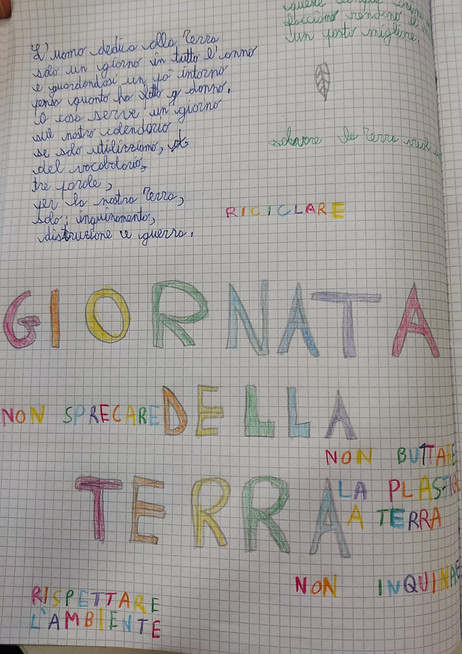 L'uomo dedica alla Terra
solo un giorno in tutto l'anno
e guardandosi un po' intorno
vense quanto ha fatto g donno.
A cosa serve un giorno
sul nostro calendario
se solo utilizziamo,
del vocabolario,
tre parole,
per la nostra Terra,
solo; inquinamento,
distruzione e guerra.
queste
facciamo rendino il
un posto migliore.
la Terra
RICICLARE
GIORNATA
NON SPRECARE DELLA
NON BUTTARE
LA PLASTI
TERRA
A TERRA
NON INQUINA
RISPETTARE
L'AMBIENTE